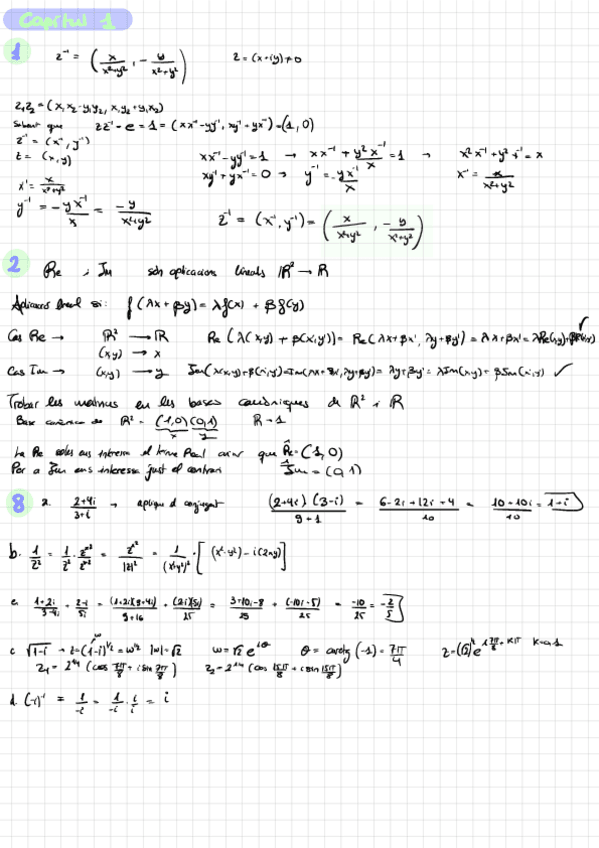 Capítul 1
1 z⁻¹ = (x/(x²+y²), -y/(x²+y²)) z = (x+iy) ≠ 0
z₁z₂ = (x₁x₂ - y₁y₂, x₁y₂ + y₁x₂)
zz⁻¹ = e = 1 = (xx⁻¹ - yy⁻¹, xy⁻¹ + yx⁻¹) = (1, 0)
z⁻¹ = (x⁻¹, y⁻¹)
z = (x, y) xx⁻¹ - yy⁻¹ = 1 → xx⁻¹ + y²x⁻¹/x = 1 → x²x⁻¹ + y²x⁻¹ = x
x⁻¹ = x/(x²+y²) xy⁻¹ + yx⁻¹ = 0 → y⁻¹ = -yx⁻¹/x x⁻¹ = x/(x²+y²)
y⁻¹ = -yx⁻¹/x = -y/(x²+y²) z⁻¹ = (x⁻¹, y⁻¹) = (x/(x²+y²), -y/(x²+y²))
2 Re i Im són aplicacions lineals ℝ² → ℝ
Aplicació lineal si: f(λx + βy) = λf(x) + βf(y)
Cas Re → ℝ² → ℝ Re(λ(x,y) + β(x',y')) = Re(λx + βx', λy + βy') = λx + βx' = λRe(x,y) + βRe(x',y') ✓
(x,y) → x
Cas Im → (x,y) → y Im(λ(x,y) + β(x',y')) = Im(λx + βx', λy + βy') = λy + βy' = λIm(x,y) + βIm(x',y') ✓
Trobar les matrius en les bases canòniques de ℝ² i ℝ
Base canònica de ℝ² = (1,0) (0,1) ℝ → 1
x y
La Re sols ens interessa el terme Real així que R̂e = (1, 0)
Per a Im ens interessa just el contrari Îm = (0, 1)
8 a. (2+4i)/(3+i) → aplique el conjugat (2+4i)(3-i)/(9+1) = (6-2i+12i+4)/10 = (10+10i)/10 = 1+i
b. 1/z² = 1/z² · z*²/z*² = z*²/|z|² = 1/(x²+y²)² · [(x²-y²) - i(2xy)]
e. (1+2i)/(3-4i) + (2-i)/5i = (1+2i)(3+4i)/(9+16) + (2-i)(5i)/25 = (3+10i-8)/25 + (-10i-5)/25 = -10/25 = -2/5
c √(1-i) → z = (1-i)^(1/2) = w^(1/2) |w| = √2 w = √2 e^(iθ) θ = arctg(-1) = 7π/4 z = (√2)^(1/2) e^(i 7π/8 + kπ) k = 0,1
z₁ = 2^(1/4) (cos 7π/8 + i sin 7π/8) z₂ = 2^(1/4) (cos 15π/8 + i sin 15π/8)
d. (-i)⁻¹ = 1/-i = 1/-i · i/i = i